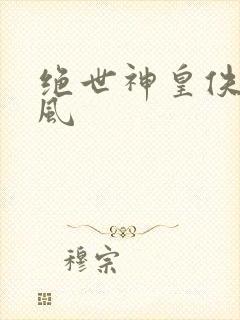 绝世神皇佚
风
穆宗